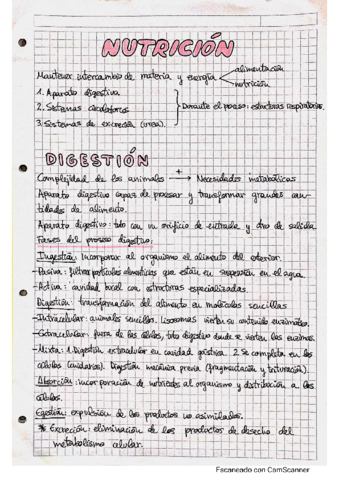 NUTRICIÓN
Mantener intercambio de materia y energía
alimentación
nutrición
1. Aparato digestivo
2. Sistemas circulatorios
3. Sistemas de excreción (urea).
Durante el proceso: estructuras respiratorias.
DIGESTIÓN
Complejidad de los animales + → Necesidades metabólicas
Aparato digestivo capaz de procesar y transformar grandes can-
tidades de alimento.
Aparato digestivo: tubo con un orificio de entrada y otro de salida
Fases del proceso digestivo:
Ingestión: incorporar al organismo el alimento del exterior.
- Pasiva: filtra partículas alimenticias que están en suspensión en el agua
- Activa: cavidad bucal con estructuras especializadas.
Digestión: transformación del alimento en moléculas sencillas
- Intracelular: animales sencillos, lisosomas vierten su contenido enzimático.
- Extracelular: fuera de las células, tubo digestivo donde se vierten las enzimas.
- Mixta: 1. Digestión extracelular en cavidad gástrica. 2. Se completa en las
células (cnidarios). Digestión mecánica previa (fragmentación y trituración).
Absorción: incorporación de nutrientes al organismo y distribución a las
células.
Egestión: expulsión de los productos no asimilados.
* Excreción: eliminación de los productos de desecho del
metabolismo celular.
Escaneado con CamScanner